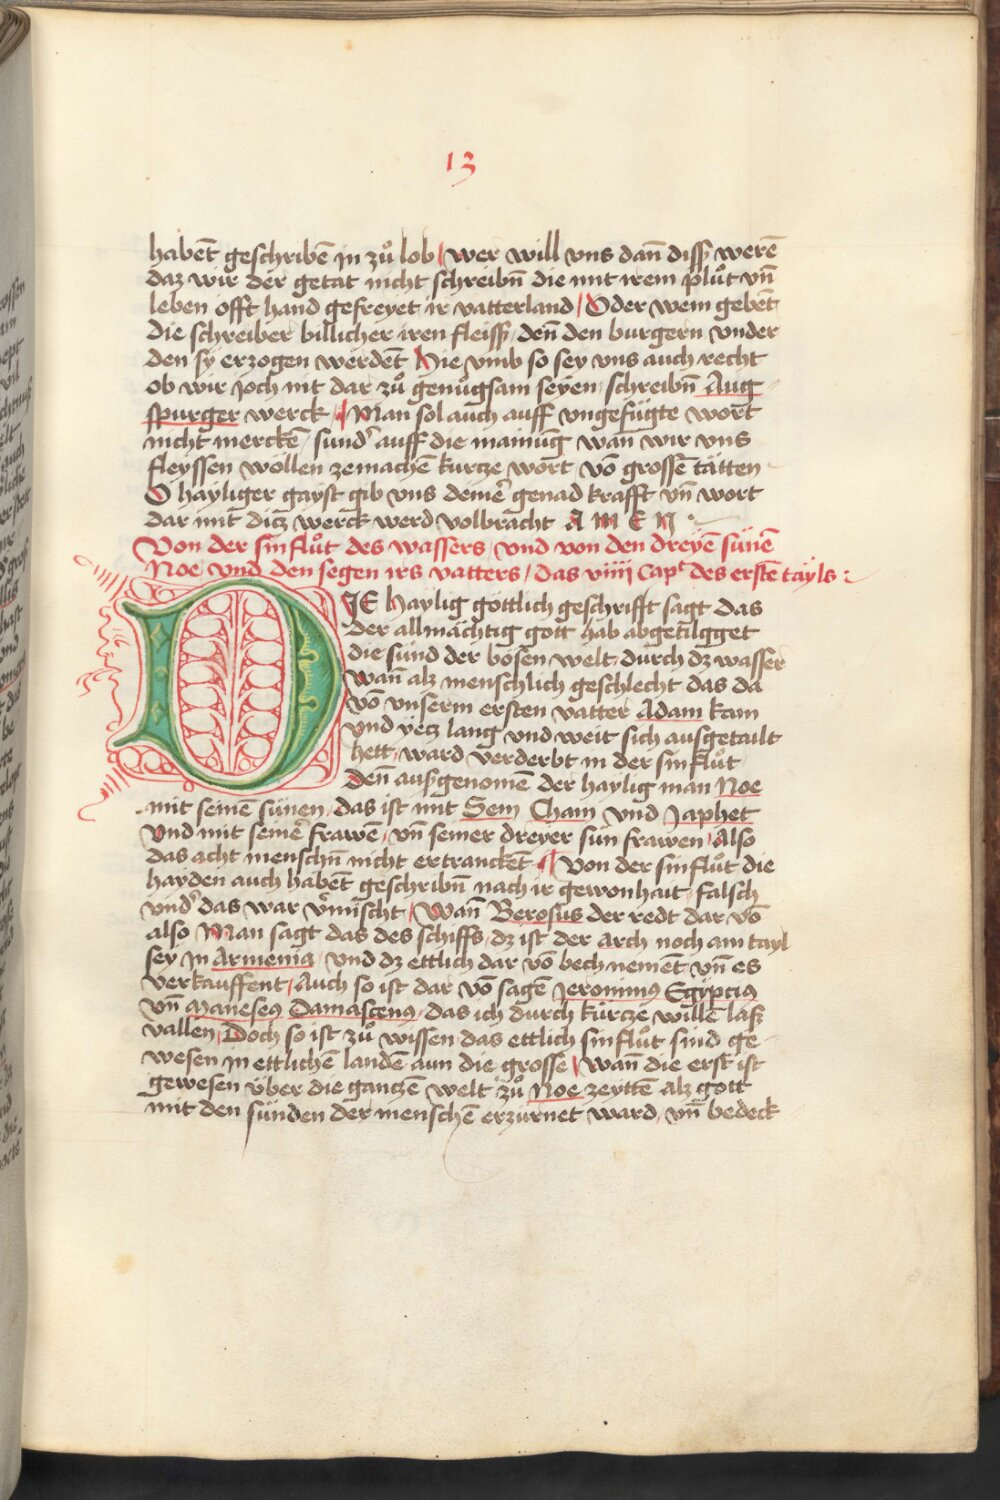 13
habent̄ geschribē jn zů lob / wer will vns dañ diss werē
daz wir der getat nicht schreibn̄ die mit irem plůt vn̄
leben offt hand gefreyet ir vatterland / Oder wem gebent
die schreiber billicher iren fleiss, den̄ den burgern vnder
den sÿ erzogen werdent̄ Hie vmb so sey vns auch recht
ob wir joch nit dar zů genůgsam seyen, schreibn̄ Aug
spurger werck, ¶ Man sol auch auff vngefügte wort
nicht mercken̄, sundʼ auff die mainūg wan̄ wir vns
fleyssen wöllen zemachen̄ kurtze wort vō grossē tätten
O hayliger gayst gib vns deinēʼ genad krafft vn̄ wort
dar mit ditz werck werd volbracht A M E N
Von der sinflůt des wassers, vnd von den dreyē sünē
Noe, vnd den segen irs vatters, das viiii Capᵗ des erstē tayls :
DIE haylig göttlich geschrifft sagt das
der allmächtig gott hab abgetilgget
die sünd der bösen welt, durch dz wasser
wan̄ alz menschlich geschlecht das da
vō vnserm ersten vatter Adam kam
vnd yetz lang vnd weit sich ausgetailt
hett, ward verderbt in der sinflůt,
den̄ ausgenomen̄ der haylig man Noe
mit seinē sünen, das ist mit Sem Cham vnd Japhet
vnd mit seinē frawē, vn̄ seiner dreyer sün frawen, Also
das acht menschn̄ nicht ertranckent̄ ¶ Von der sinflůt die
hayden auch habent̄ geschribn̄ nach ir gewonhait, falsch
vndʼ das war v̄mischt / Wan̄ Berosus der redt dar vō
also Man sagt das des schiffs, dz ist der arch noch am tayl
sey jn Armenia, vnd dz ettlich dar vō bech nement̄ vn̄ es
verkauffent / Auch so ist dar vō sagē Jeronimus Egÿptius
vn̄ Maneseus Damascenus, das ich durch kürtze willē lasz
vallen, Doch so ist zů wissen das ettlich sinflůt sind ge
wesen jn ettlichē landē aun die grosse / Wan̄ die erst ist
gewesen über die gantzē welt zů Noe zeyttē alz gott
mit den sünden der menschē erzürnet ward, vn̄ bedeck